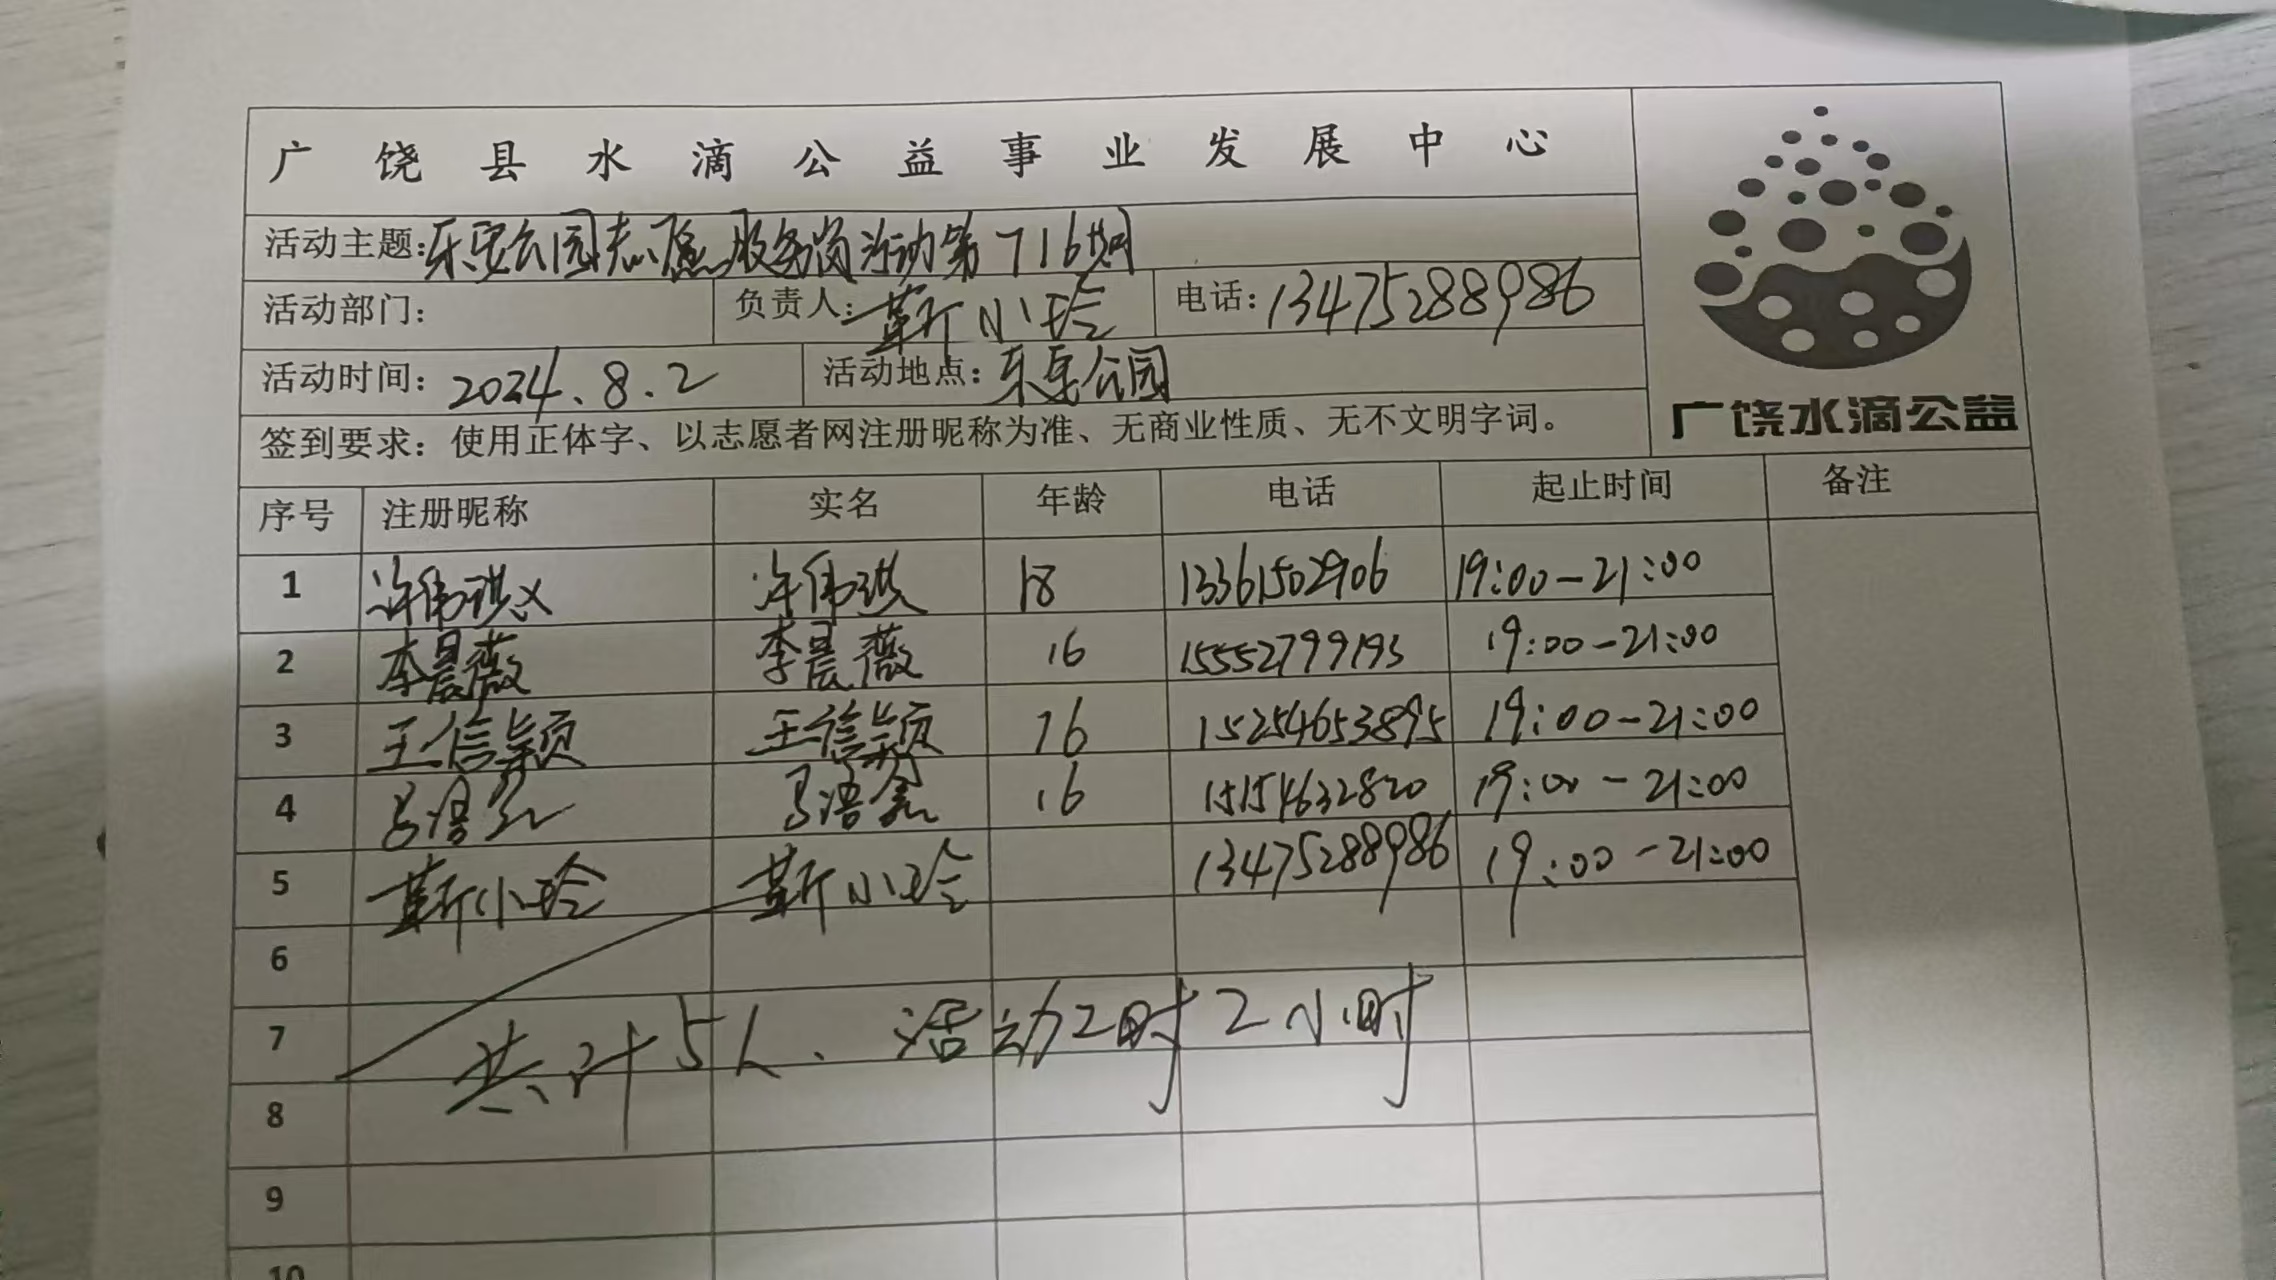 广饶县水滴公益事业发展中心
活动主题：乐安公园志愿服务岗活动第716期
活动部门： 负责人：靳小玲 电话：13475288986
活动时间：2024.8.2 活动地点：乐安公园
广饶水滴公益
签到要求：使用正体字、以志愿者网注册昵称为准、无商业性质、无不文明字词。
序号 注册昵称 实名 年龄 电话 起止时间 备注
1 许伟祺 许伟祺 18 13361502906 19:00-21:00
2 李晨薇 李晨薇 16 15552799193 19:00-21:00
3 王信颖 王信颖 16 15254653895 19:00-21:00
4 16 15154632820 19:00-21:00
5 靳小玲 靳小玲 13475288986 19:00-21:00
6
7
共计5人、活动2时2小时
8
9
10